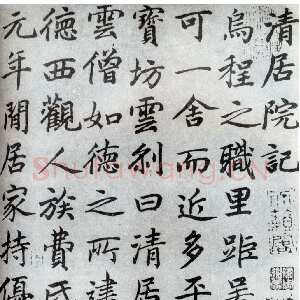 清居院記
烏程之職里距吳
可一舍而近多平
寶坊雲刹曰清居
雲僧如德之所建
德西觀人族費氏
元年閒居家持優